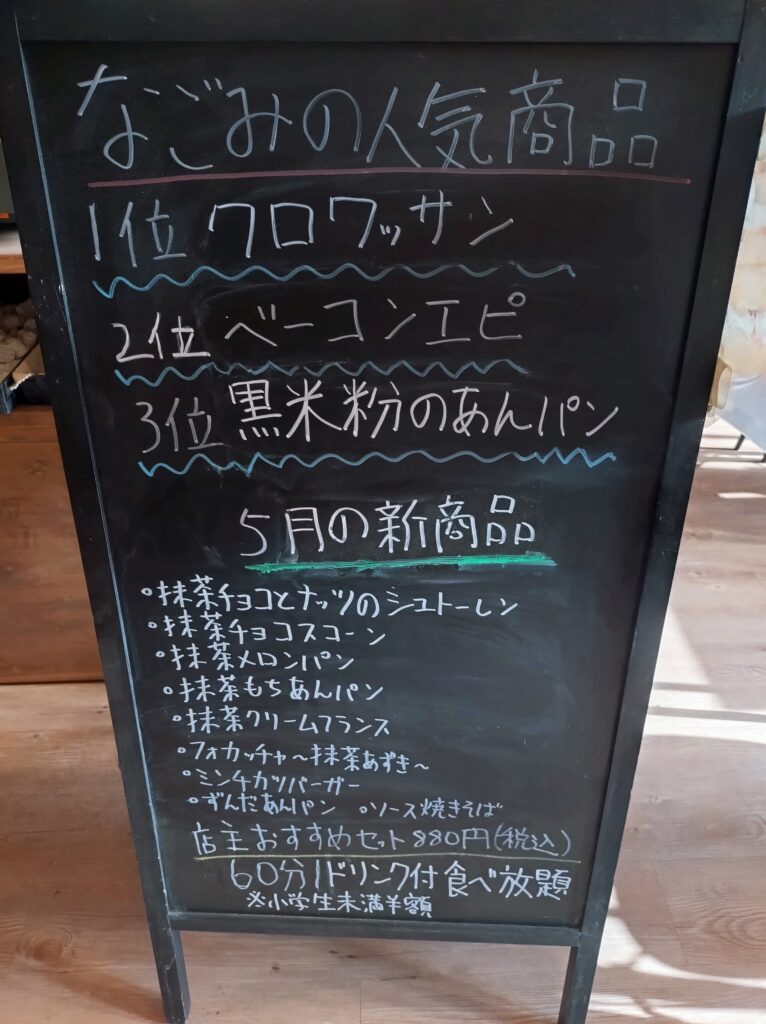 なごみの人気商品
1位 クロワッサン
2位 ベーコンエピ
3位 黒米粉のあんパン
5月の新商品
・抹茶チョコとナッツのシュトーレン
・抹茶チョコスコーン
・抹茶メロンパン
・抹茶もちあんパン
・抹茶クリームフランス
・フォカッチャ〜抹茶あずき〜
・ミンチカツバーガー
・ずんだあんパン ・ソース焼きそば
店主おすすめセット880円(税込)
60分1ドリンク付食べ放題
※小学生未満半額